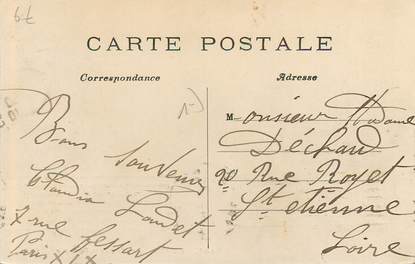 67
CARTE POSTALE
Correspondance
Adresse
Bons Souvenirs
Claudia Laudet
7 rue Gessart
Paris XIX
Monsieur Madame
Déchaud
20 Rue Royet
St etienne
Loire